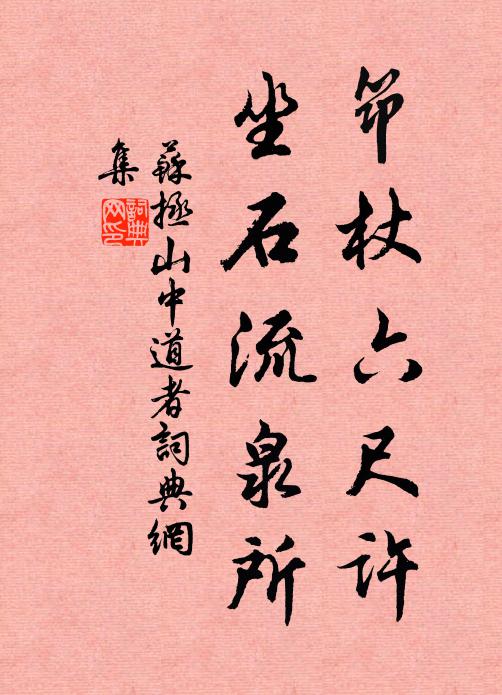 笻杖六尺許
坐石流泉所
蘇拯山中道者詞典網
集
詞典
网印